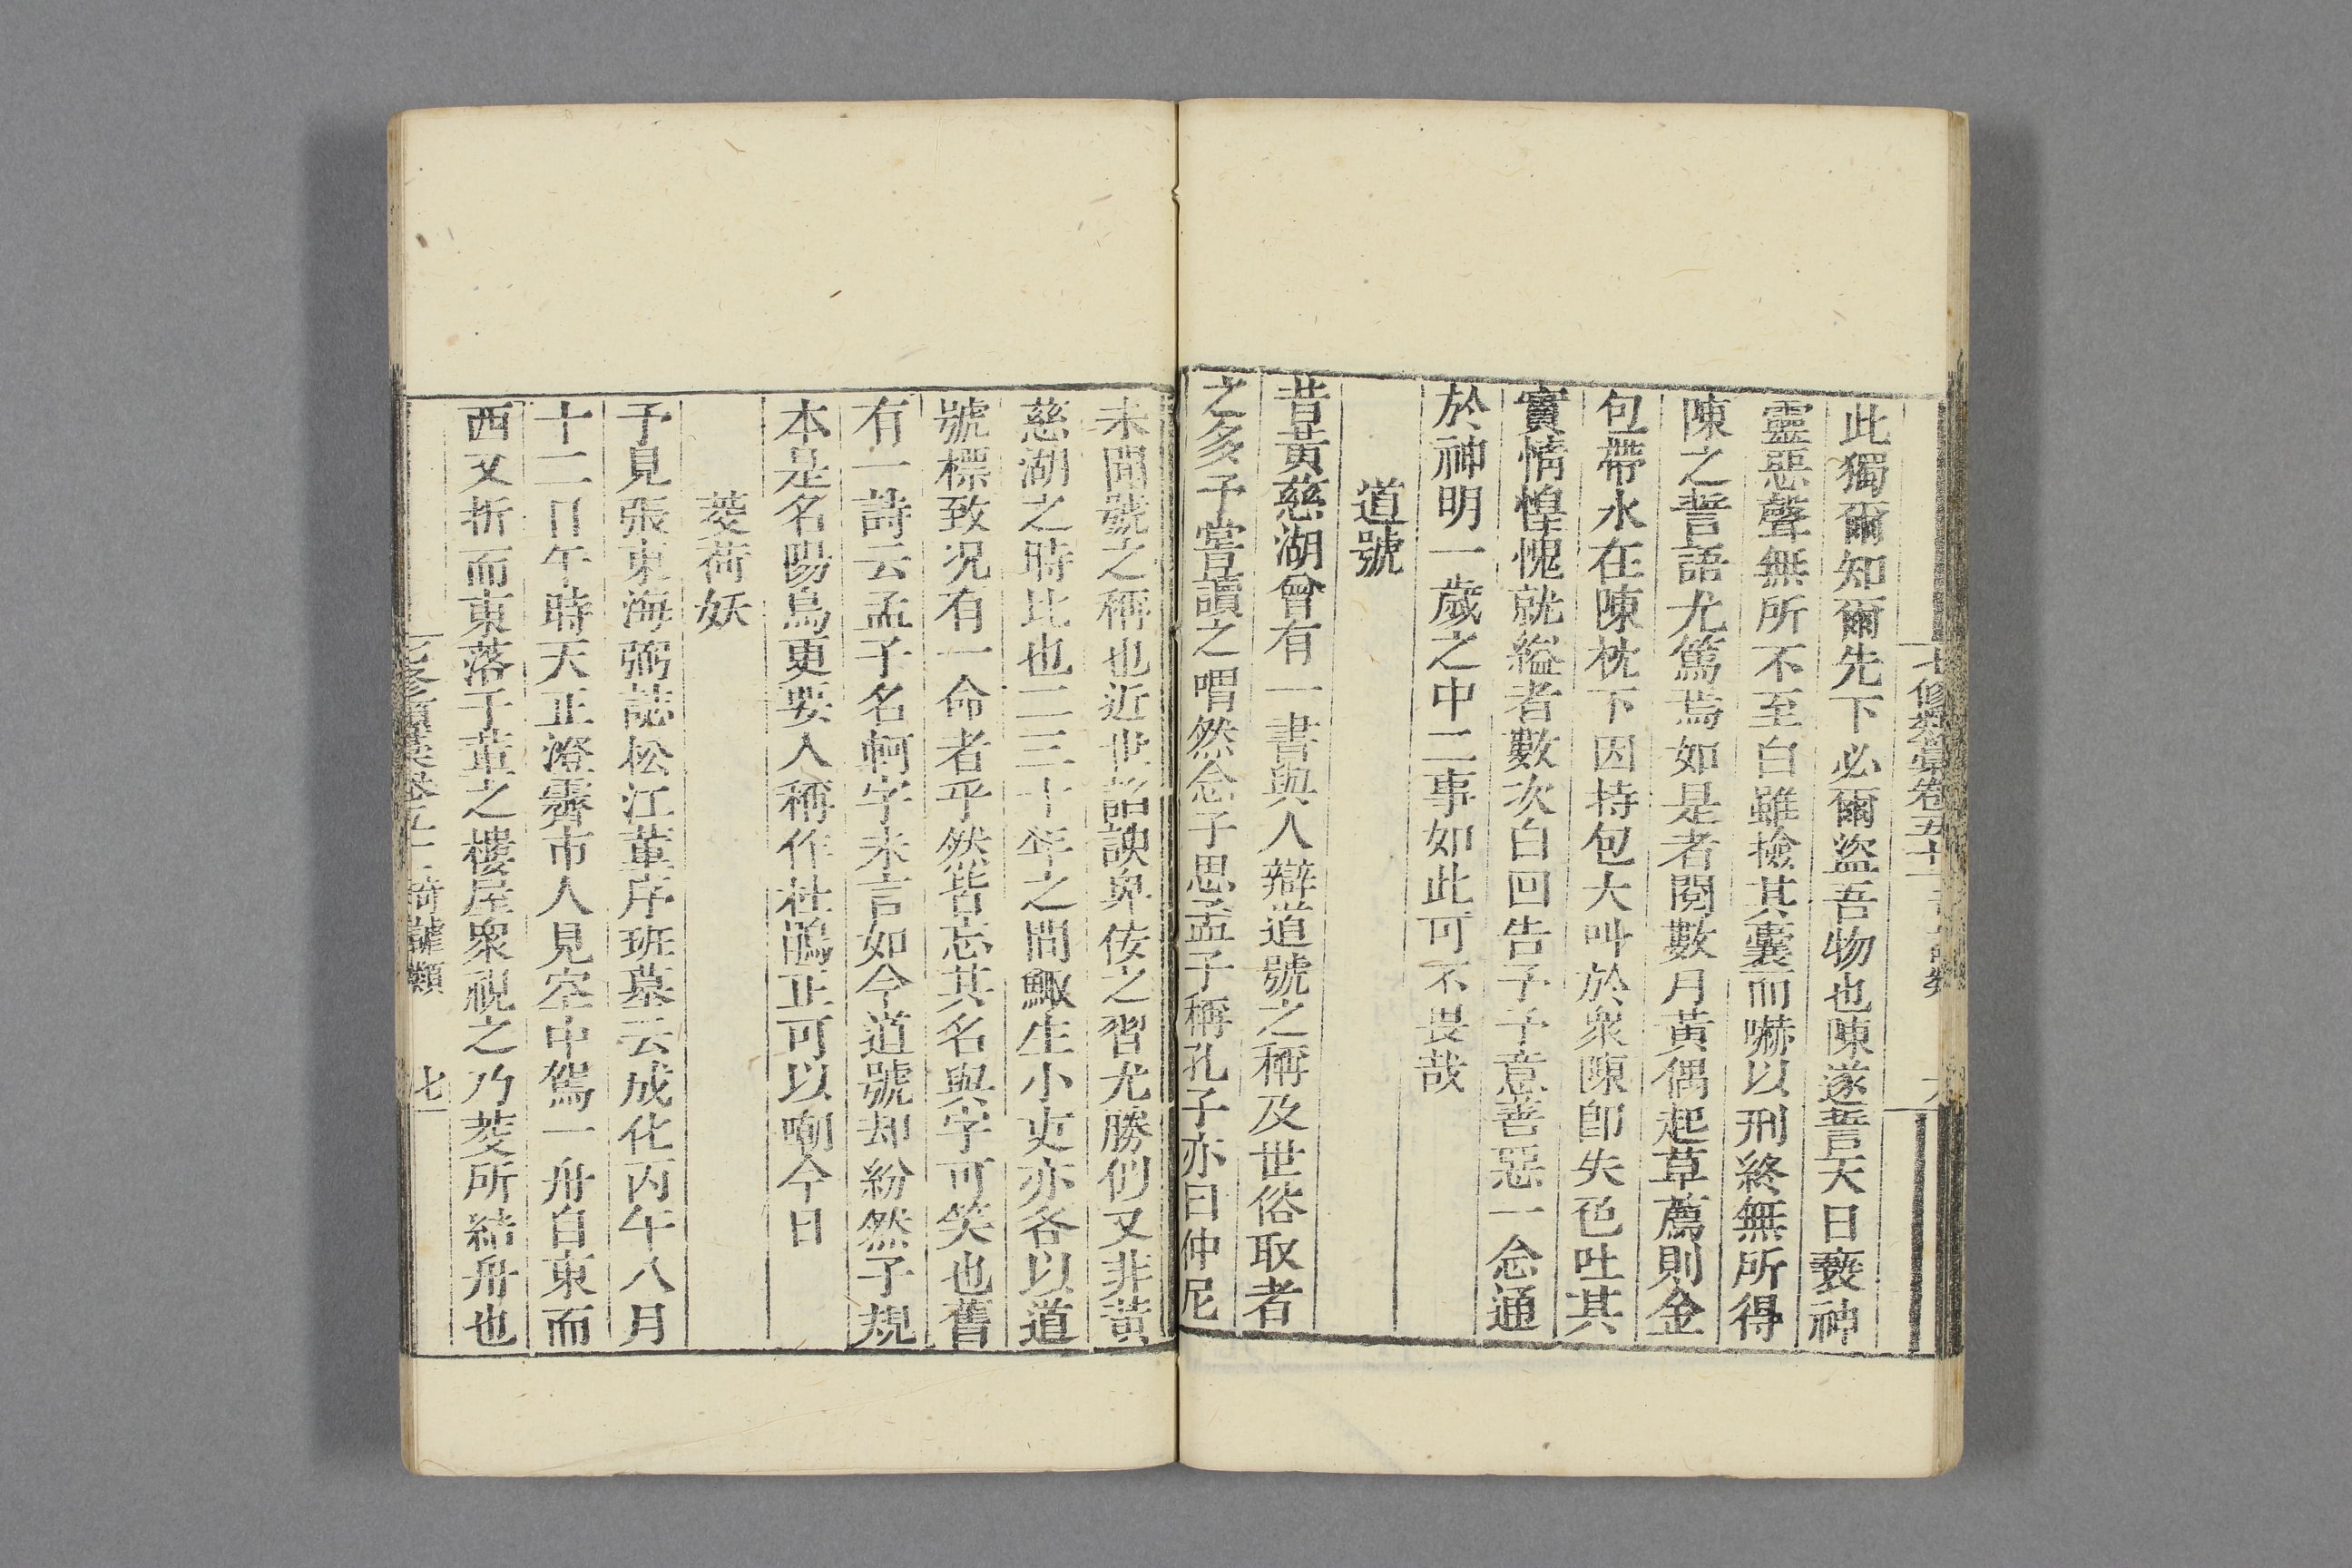 七修類藁卷五十一
此獨爾知爾先下必爾盜吾物也陳遂誓天日褻神
靈惡聲無所不至白雖撿其囊而嚇以刑終無所得
陳之誓語尤篤焉如是者閱數月黃偶起草薦則金
包帶水在陳枕下因持包大呌於衆陳卽失色吐其
實情惶愧就縊者數次白回告予予意善惡一念通
於神明一歲之中二事如此可不畏哉
道號
昔黃慈湖曾有一書與人辯道號之稱及世俗取者
之多予嘗讀之喟然念子思孟子稱孔子亦曰仲尼
未聞號之稱也近世諂諛卑佞之習尤勝們又非黃
慈湖之時比也二三十年之間鯫生小吏亦各以道
號標致况有一命者乎然皆忘其名與字可笑也舊
有一詩云孟子名軻字未言如今道號却紛然子規
本是名陽鳥更要人稱作杜鵑正可以嘲今日
菱荷妖
予見張東海弼誌松江董序班墓云成化丙午八月
十二日午時天正澄霽市人見空中駕一舟自東而
西又折而東落于董之樓屋衆視之乃菱所結舟也
奇謔類
七